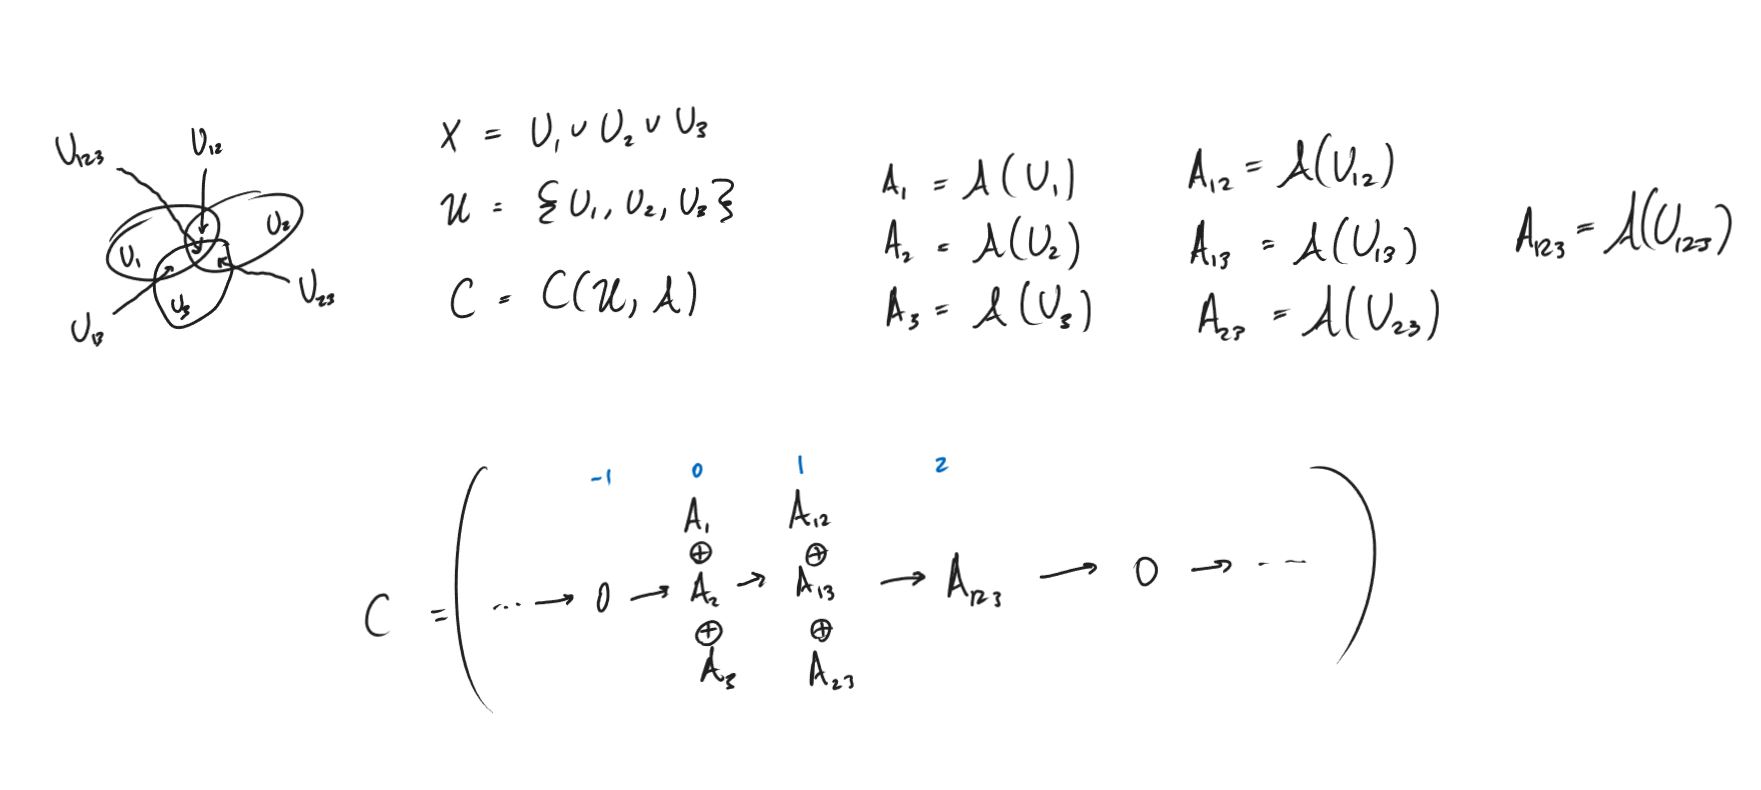 U₁₂₃ U₁₂
U₁ U₂
U₃
U₁₃ U₂₃
X = U₁ ∪ U₂ ∪ U₃
𝒰 = {U₁, U₂, U₃}
C = C(𝒰, 𝒜)
A₁ = 𝒜(U₁)
A₂ = 𝒜(U₂)
A₃ = 𝒜(U₃)
A₁₂ = 𝒜(U₁₂)
A₁₃ = 𝒜(U₁₃)
A₂₃ = 𝒜(U₂₃)
A₁₂₃ = 𝒜(U₁₂₃)
-1 0 1 2
A₁ A₁₂
⊕ ⊕
C = ( ⋯ → 0 → A₂ → A₁₃ → A₁₂₃ → 0 → ⋯ )
⊕ ⊕
A₃ A₂₃